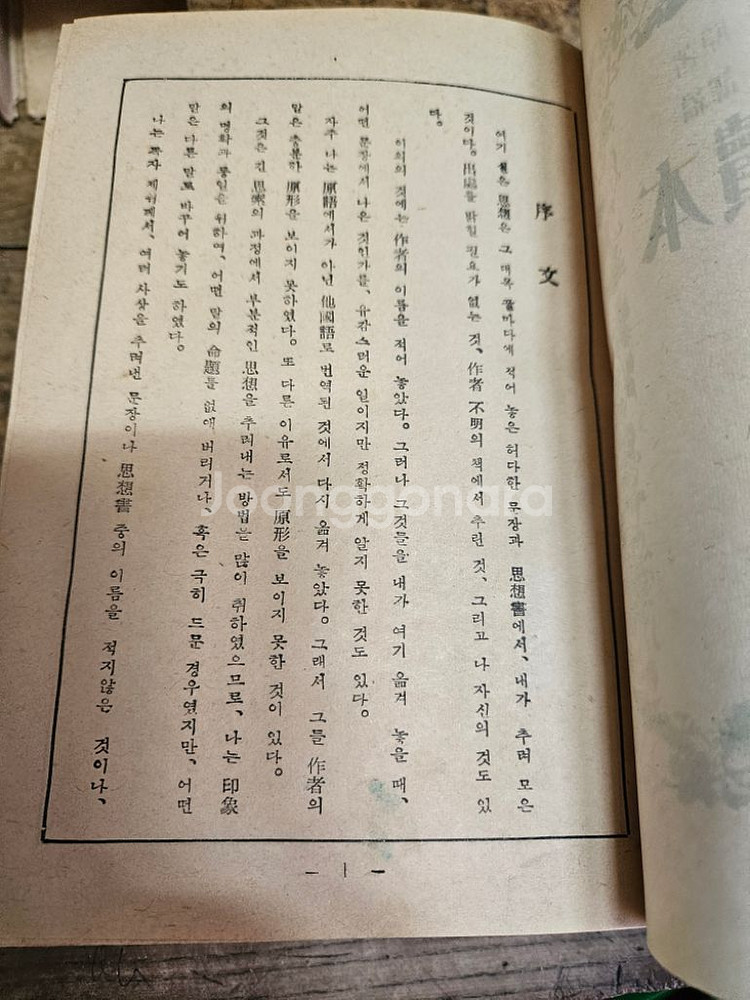 序文
여기 실은 思想은 그 대목 끝마다에 적어 놓은 허다한 문장과 思想書에서、내가 추려 모은
것이다。出處를 밝힐 필요가 없는 것、作者 不明의 책에서 추린 것、그리고 나 자신의 것도 있
다。
이외의 것에는 作者의 이름을 적어 놓았다。그러나 그것들을 내가 여기 옮겨 놓을 때、
어떤 문장에서 나온 것인가를、유감스러운 일이지만 정확하게 알지 못한 것도 있다。
자주 나는 原語에서가 아닌 他國語로 번역된 것에서 다시 옮겨 놓았다。그래서 그들 作者의
말은 충분히 原形을 보이지 못하였다。또 다른 이유로서도 原形을 보이지 못한 것이 있다。
그것은 긴 思索의 과정에서 부분적인 思想을 추려내는 방법을 많이 취하였으므로、나는 印象
의 명확과 통일을 위하여、어떤 말의 命題를 없애 버리거나、혹은 극히 드문 경우였지만、어떤
말은 다른 말로 바꾸어 놓기도 하였다。
나는 독자 제위께서、여러 사상을 추려낸 문장이나 思想書 중의 이름을 적지않은 것이나、
— 1 —
讀本
Joonggonara